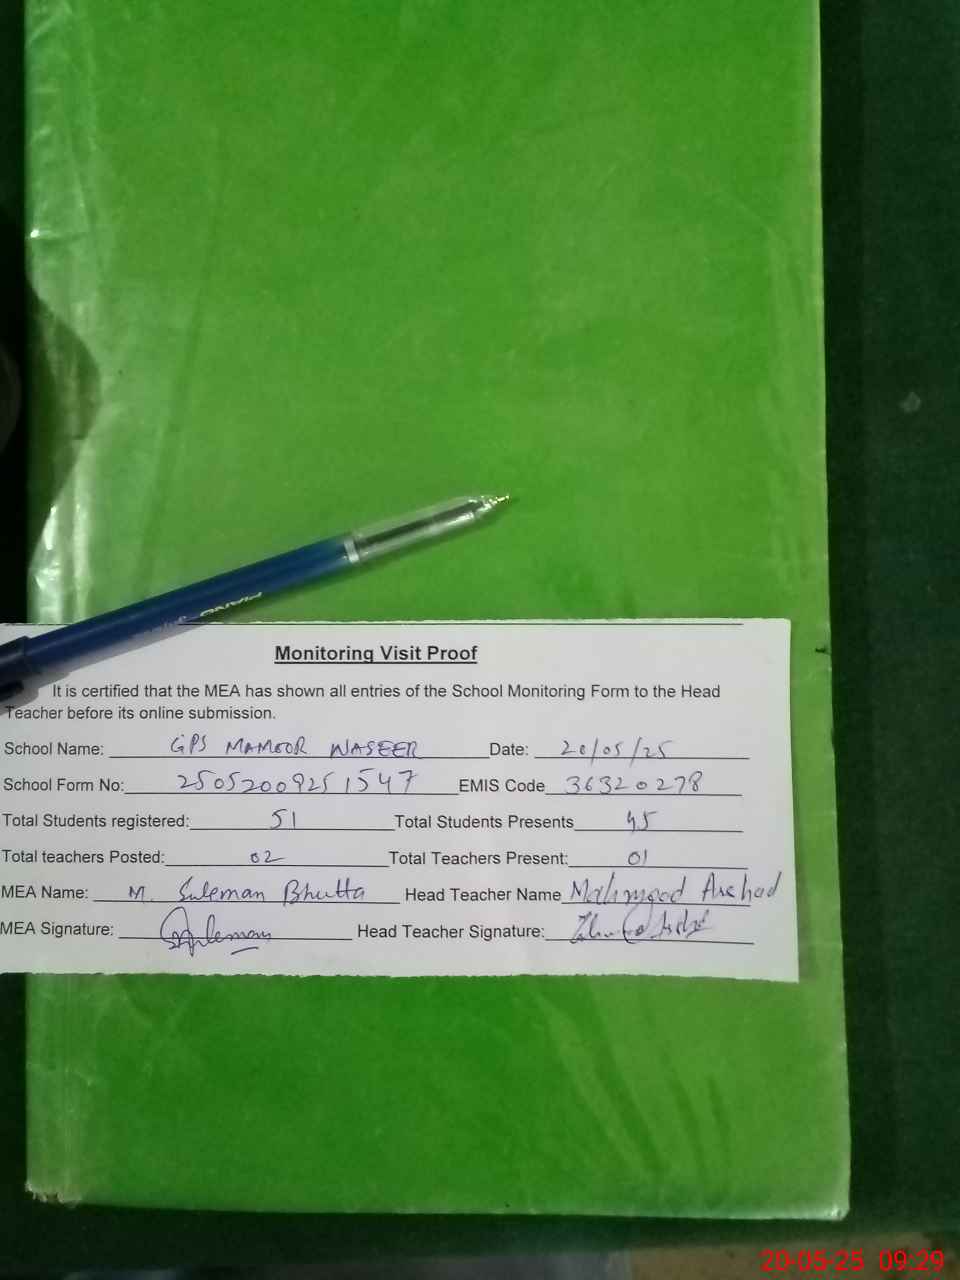 PIANO
Monitoring Visit Proof
It is certified that the MEA has shown all entries of the School Monitoring Form to the Head
Teacher before its online submission.
School Name: GPS MAMOOR WASEER Date: 20/05/25
School Form No: 25052009251547 EMIS Code 36320278
Total Students registered: 51 Total Students Presents 45
Total teachers Posted: 02 Total Teachers Present: 01
MEA Name: M. Suleman Bhutta Head Teacher Name Mahmood Arshad
MEA Signature: Suleman Head Teacher Signature:
20-05-25 09:29